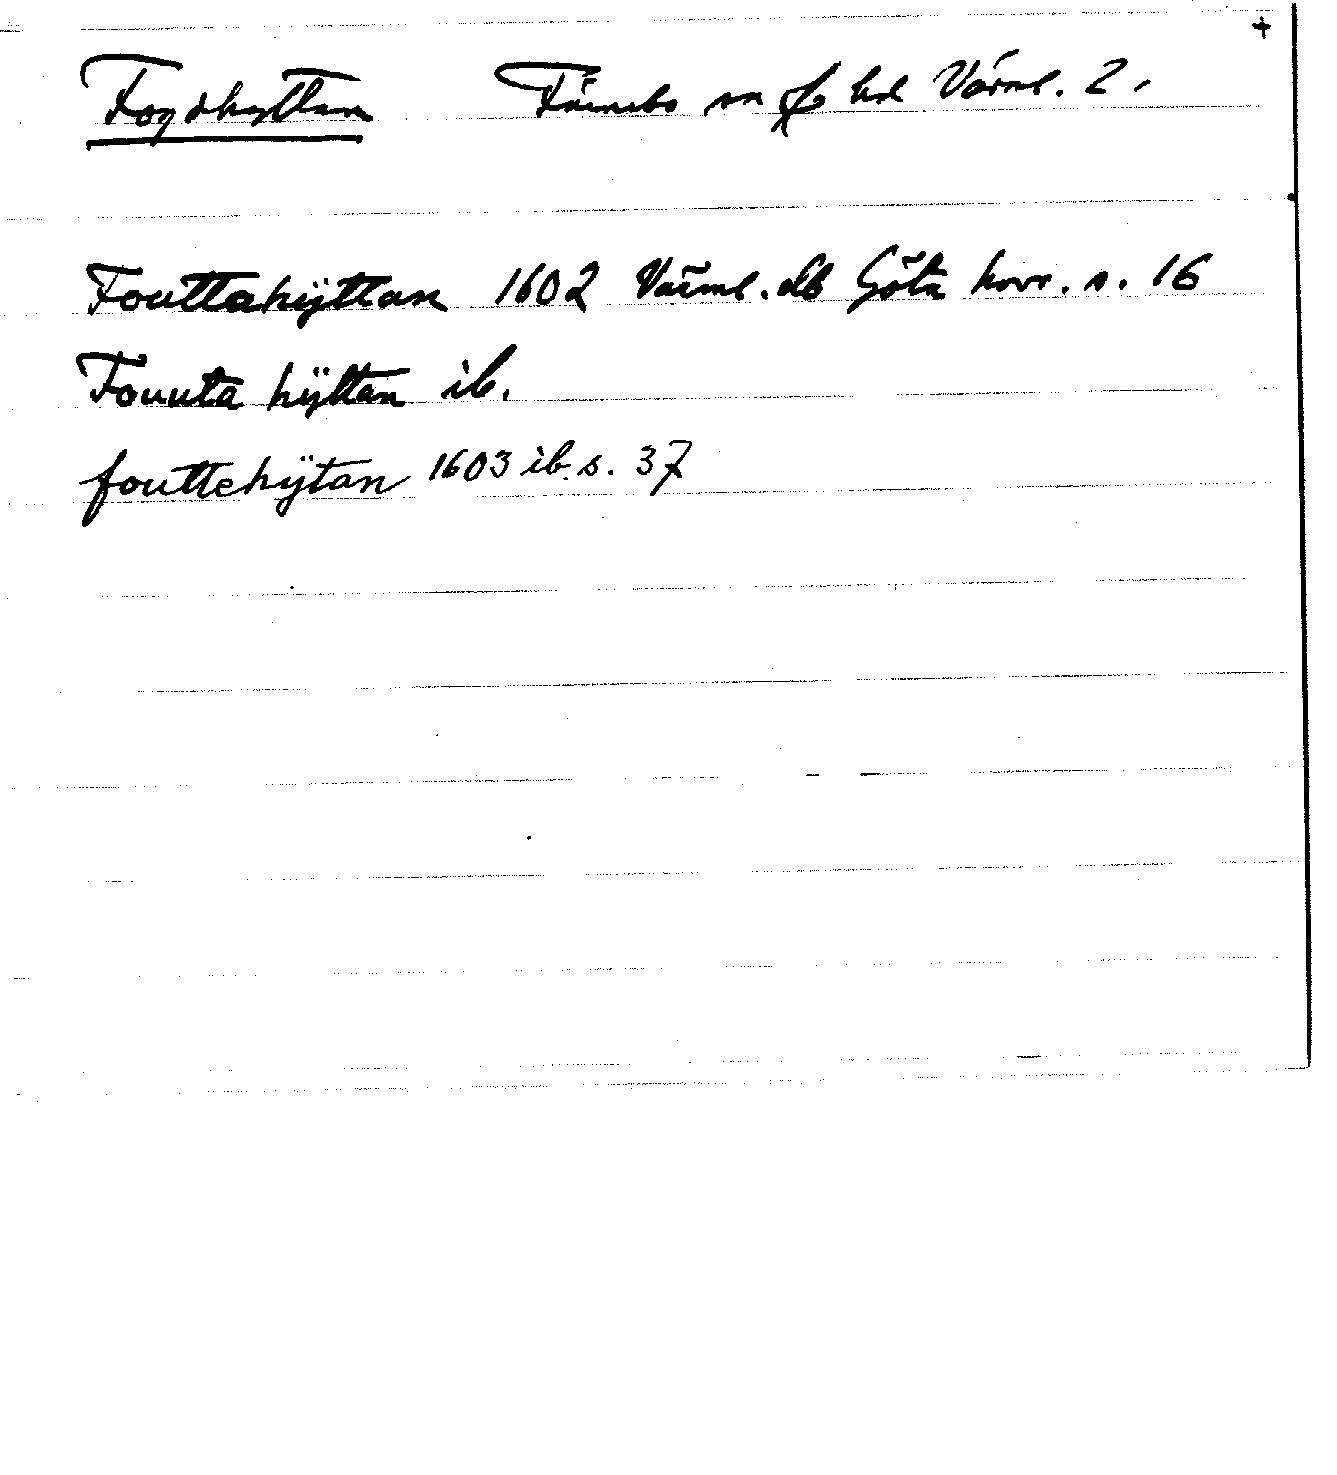 +
Fogdhyttan Färnebo sn o hd Värml. l.
Fouttahÿttan 1602 Värml. db Göta hovr. s. 16
Fouuta hÿttan ib.
fouttehÿtan 1603 ib. s. 37